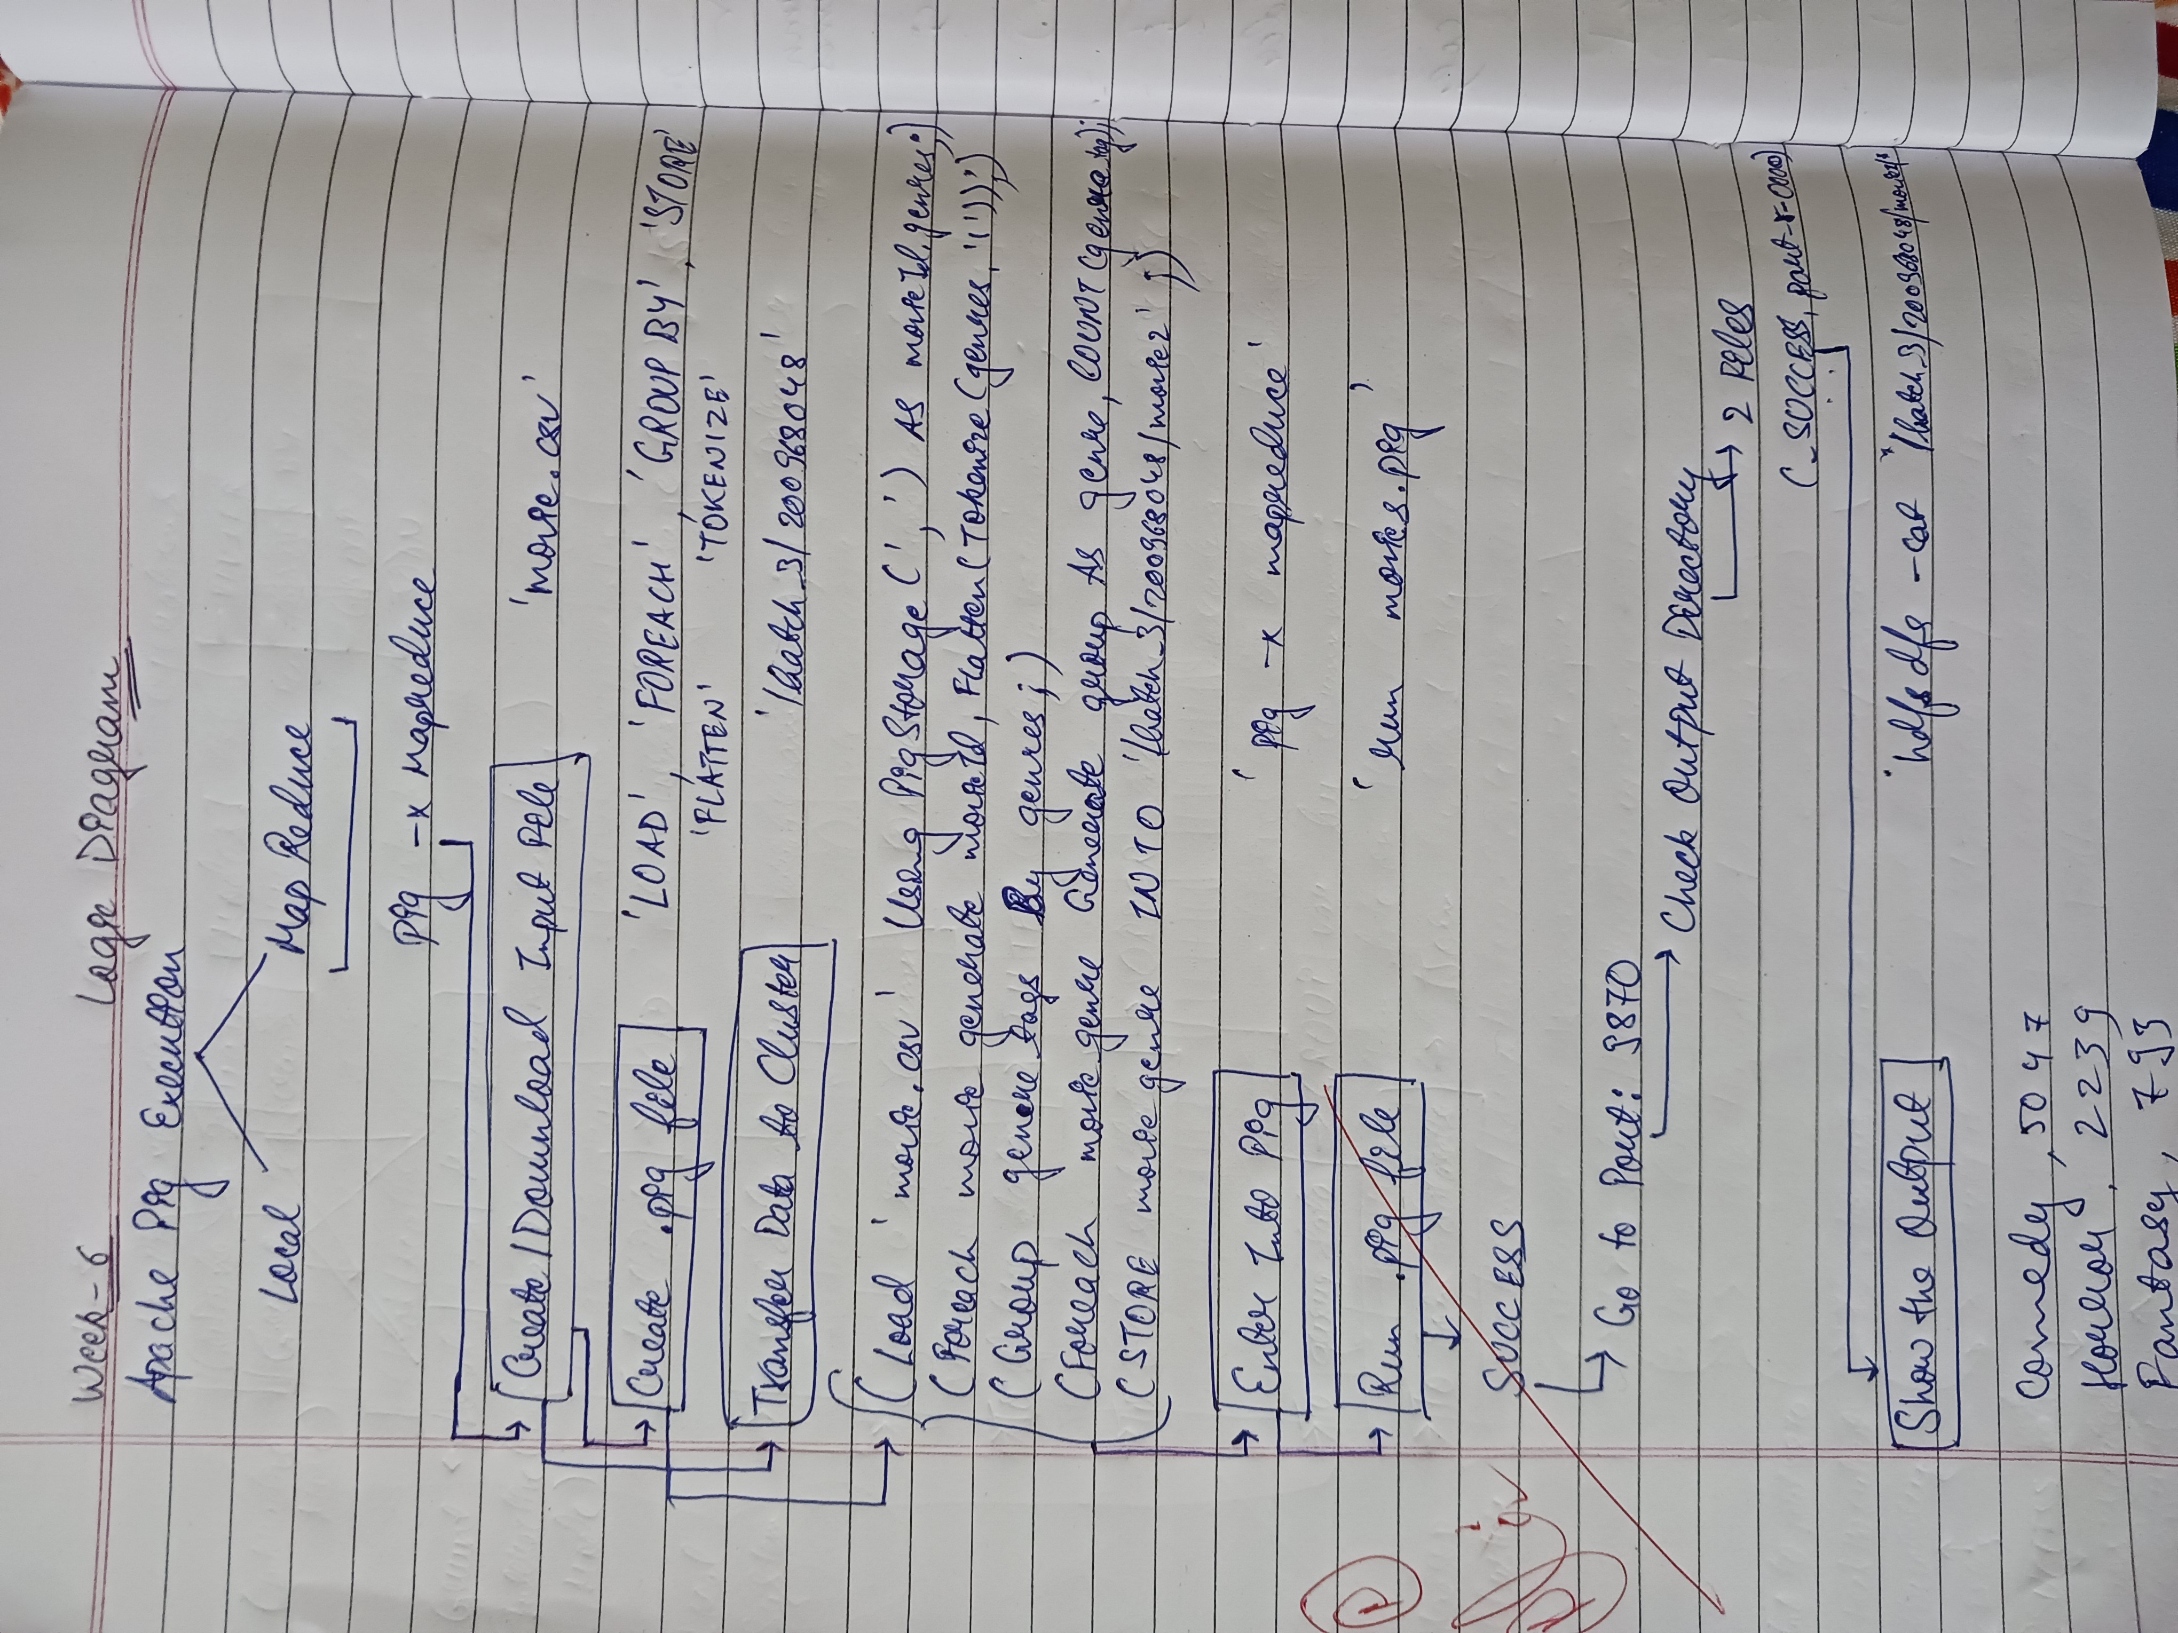 Week-6 Logic Diagram
Apache Pig Execution
Local Map Reduce
Pig -x Mapreduce
Create/Download Input File 'movie.csv'
Create .pig file 'LOAD', 'FOREACH', 'GROUP BY', 'STORE'
'FLATTEN' 'TOKENIZE'
Transfer Data to Cluster '/batch_3/200968048'
(Load 'movie.csv' Using PigStorage(',') AS movieId, genres;)
(Foreach movie generate movieId, Flatten(Tokenize(genres, '|'));)
(Group genre tags By genres;)
(Foreach movie genre Generate group As genre, COUNT(genre_tag);
(STORE movie genre INTO '/batch_3/200968048/movie2';)
Enter Into Pig 'pig -x mapreduce'
Run .pig file 'run movies.pig'
SUCCESS
Go to Port: 9870
Check Output Directory
2 Files
(_SUCCESS, part-r-0000)
Show the Output 'hdfs dfs -cat "/batch_3/200968048/movie2/*
Comedy, 5047
Horror, 2239
Fantasy, 793